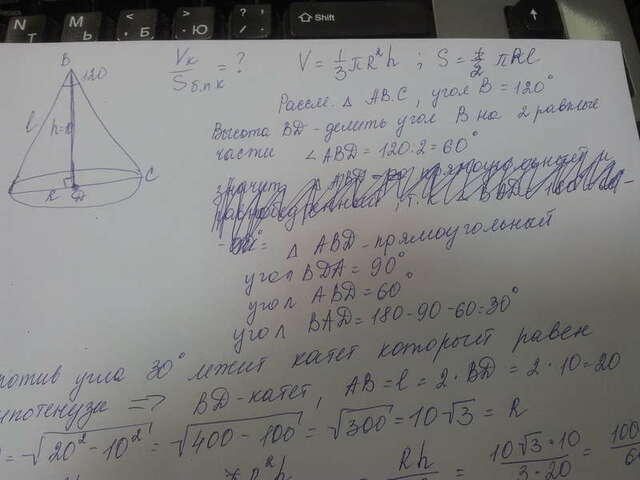 N M < > ? / Shift
Т Ь Б Ю .
B
120
l
h=
R D
C
Vк/Sб.п.к = ? V = 1/3 πR²h ; S = πRl
Рассм. Δ ABC, угол B = 120°
Высота BD - делить угол B на 2 равные
части ∠ABD = 120:2 = 60°
Δ ABD - прямоугольный
угол BDA = 90°
угол ABD = 60°
угол BAD = 180-90-60=30°
угла 30° лежит катет который равен
=> BD-катет, AB = l = 2·BD = 2·10=20
= √20²-10² = √400-100 = √300 = 10√3 = R
R²h Rh = 10√3·10/3·20 = 100